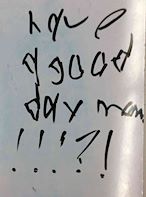 have
a good
day mom
!!!?!